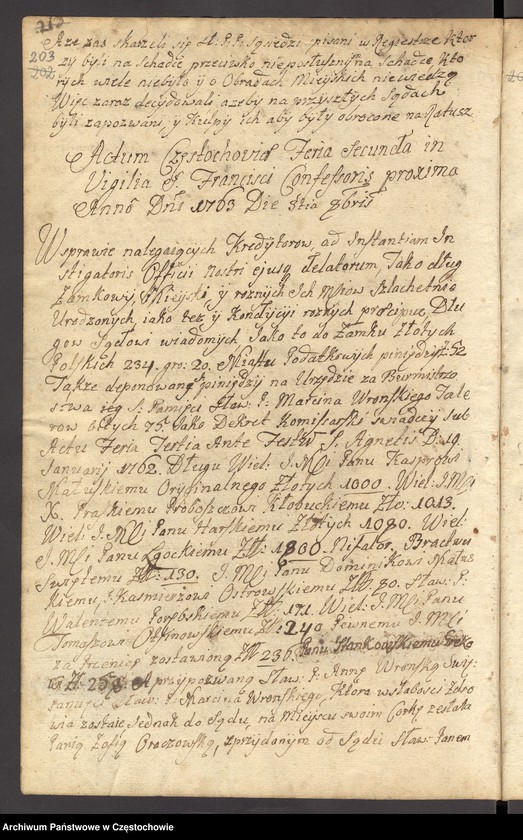 202
203
202
A że zas skarzeli się II. P. P. Sąsiedzi pisani w Regiestrze ktor
zy byli na Schadce przeciwko nieposłusznym na Schadce, kto
rych wiele niebyło y o Obradach Mieyskich niewiedzą
Więc zaraz decydowali azeby na przyszłych Sądach
byli zapozwani, y Kupy ich aby były obrocone na Ratusz
Actum Częstochoviæ Feria Secunda in
Vigilia S. Francisci Confessoris proxima
Anno Dni 1763 Die 3tia 8bris
Wsprawie nalezących Kredytorow, ad Instantiam In
stigatoris Officii Nostri ejusq delatorum, Jako dług
Zamkowy, Mieyski, y roznych Ich Mciow Szlachetnie
Urodzonych, iako tez y Kondycyi roznych Dłu
gow Sądowi wiadomych Jako to do Zamku Złotych
Polskich 234. gro: 20. Miastu Podatkowych pieniędzy Zł: 52
Takze deponowane pieniędzy na Urzędzie za Burmistrzo
stwa S. Pamięci Sław: P: Marcina Wronskiego Tale
row bitych 75. Jako Dekret Komissarski swiadczy sub
Actu Feria Tertia Ante Festum S. Agnetis D: 19
Januarij 1762. Długu Wiel: J. Mci Panu Kasprowi
Małuskiemu Oryginalnego Złotych 1000. Wiel: J. Mci
X. Praskiemu Proboszczowi Kłobuckiemu Zło: 1013.
Wiel: J. Mci Panu Harskiemu Złotych 1080. Wiel:
J. Mci Panu Zgockiemu Zł: 1800. Bractwu
Swiętemu Zł: 130. J. Mci Panu Dominikowi
kiemu, J. Kazmierzowi Ostrowskiemu Zł: 80. Sław: P:
Walentemu Porębskiemu Zł: 171. Wiel: J. Mci Panu
Tomaszowi Zł: 240. Pewnemu J. Mci
za Pszenicę zostawioną Zł: 236. Panu Stankowskiemu
Zł: 258. A przypozwaną Sław: P: Annę Wronską
Sław: P: Marcina Wronskiego, Która wsłabości zdro
wia zostaie Jednak do Sądu, na Mieyscu swoim Corkę zesłała
Panią Zofią Oraczowską, zprzydanym od Sądu Sław: Panem
Archiwum Państwowe w Częstochowie